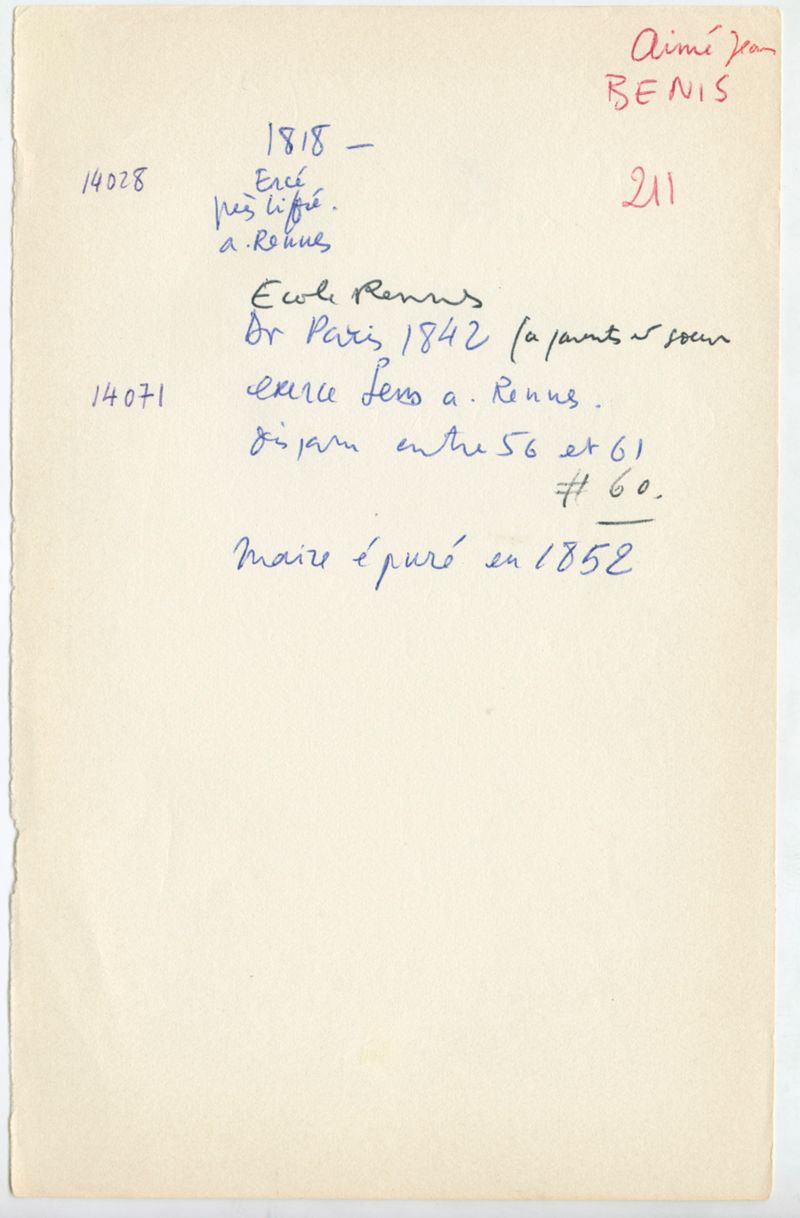 Aimé Jean
BENIS
1818 –
14028 Ercé
près Liffré.
a. Rennes
211
Ecole Rennes
Dr Paris 1842 (a parents et soeur
14071 exerce Sens a. Rennes.
disparu entre 56 et 61
# 60.
Maire épuré en 1852